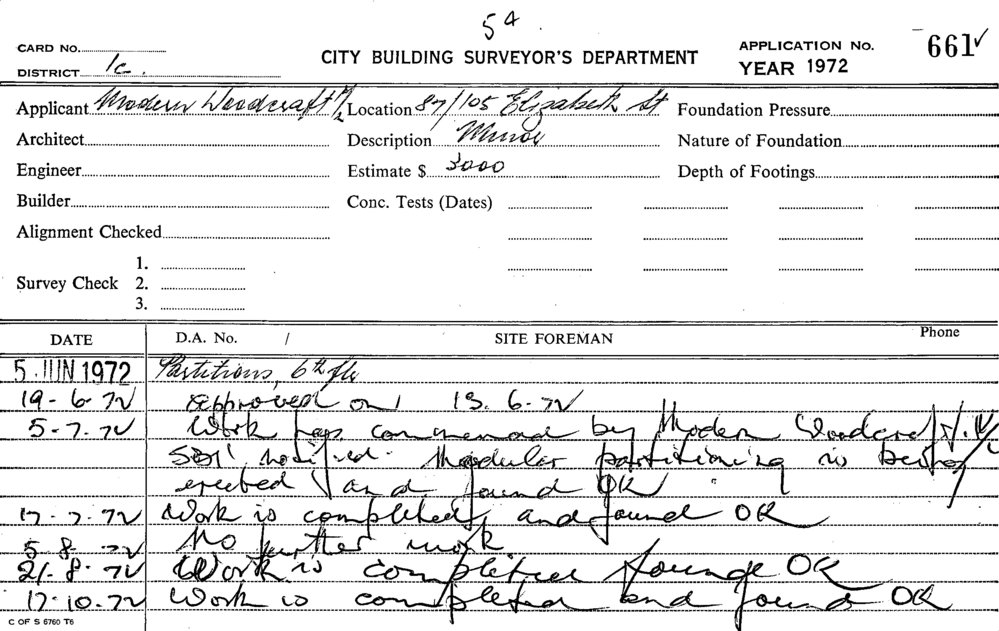 54.
CARD NO.
CITY BUILDING SURVEYOR'S DEPARTMENT
APPLICATION NO. 661
DISTRICT 1c.
YEAR 1972
Applicant Modern Woodcraft Location 87/105 Elizabeth St Foundation Pressure
Architect Description Minor Nature of Foundation
Engineer Estimate $ 3000 Depth of Footings
Builder Conc. Tests (Dates)
Alignment Checked
1.
Survey Check 2.
3.
DATE D.A. No. / SITE FOREMAN Phone
5 JUN 1972 Partitions, 6th flr
19-6-72 approved on 13.6.72
5-7-72 Work has commenced by Modern Woodcraft
notified. Modular partitioning is being
erected and found OK
17-7-72 Work is completed, and found OK
5-8-72 No further work.
21-8-72 Work is completed found OK
17-10-72 Work is completed and found OK
C OF S 6760 T6